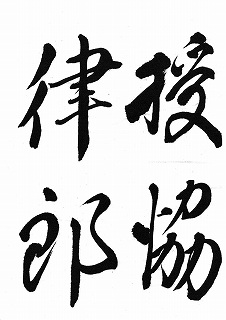 授協
律郎